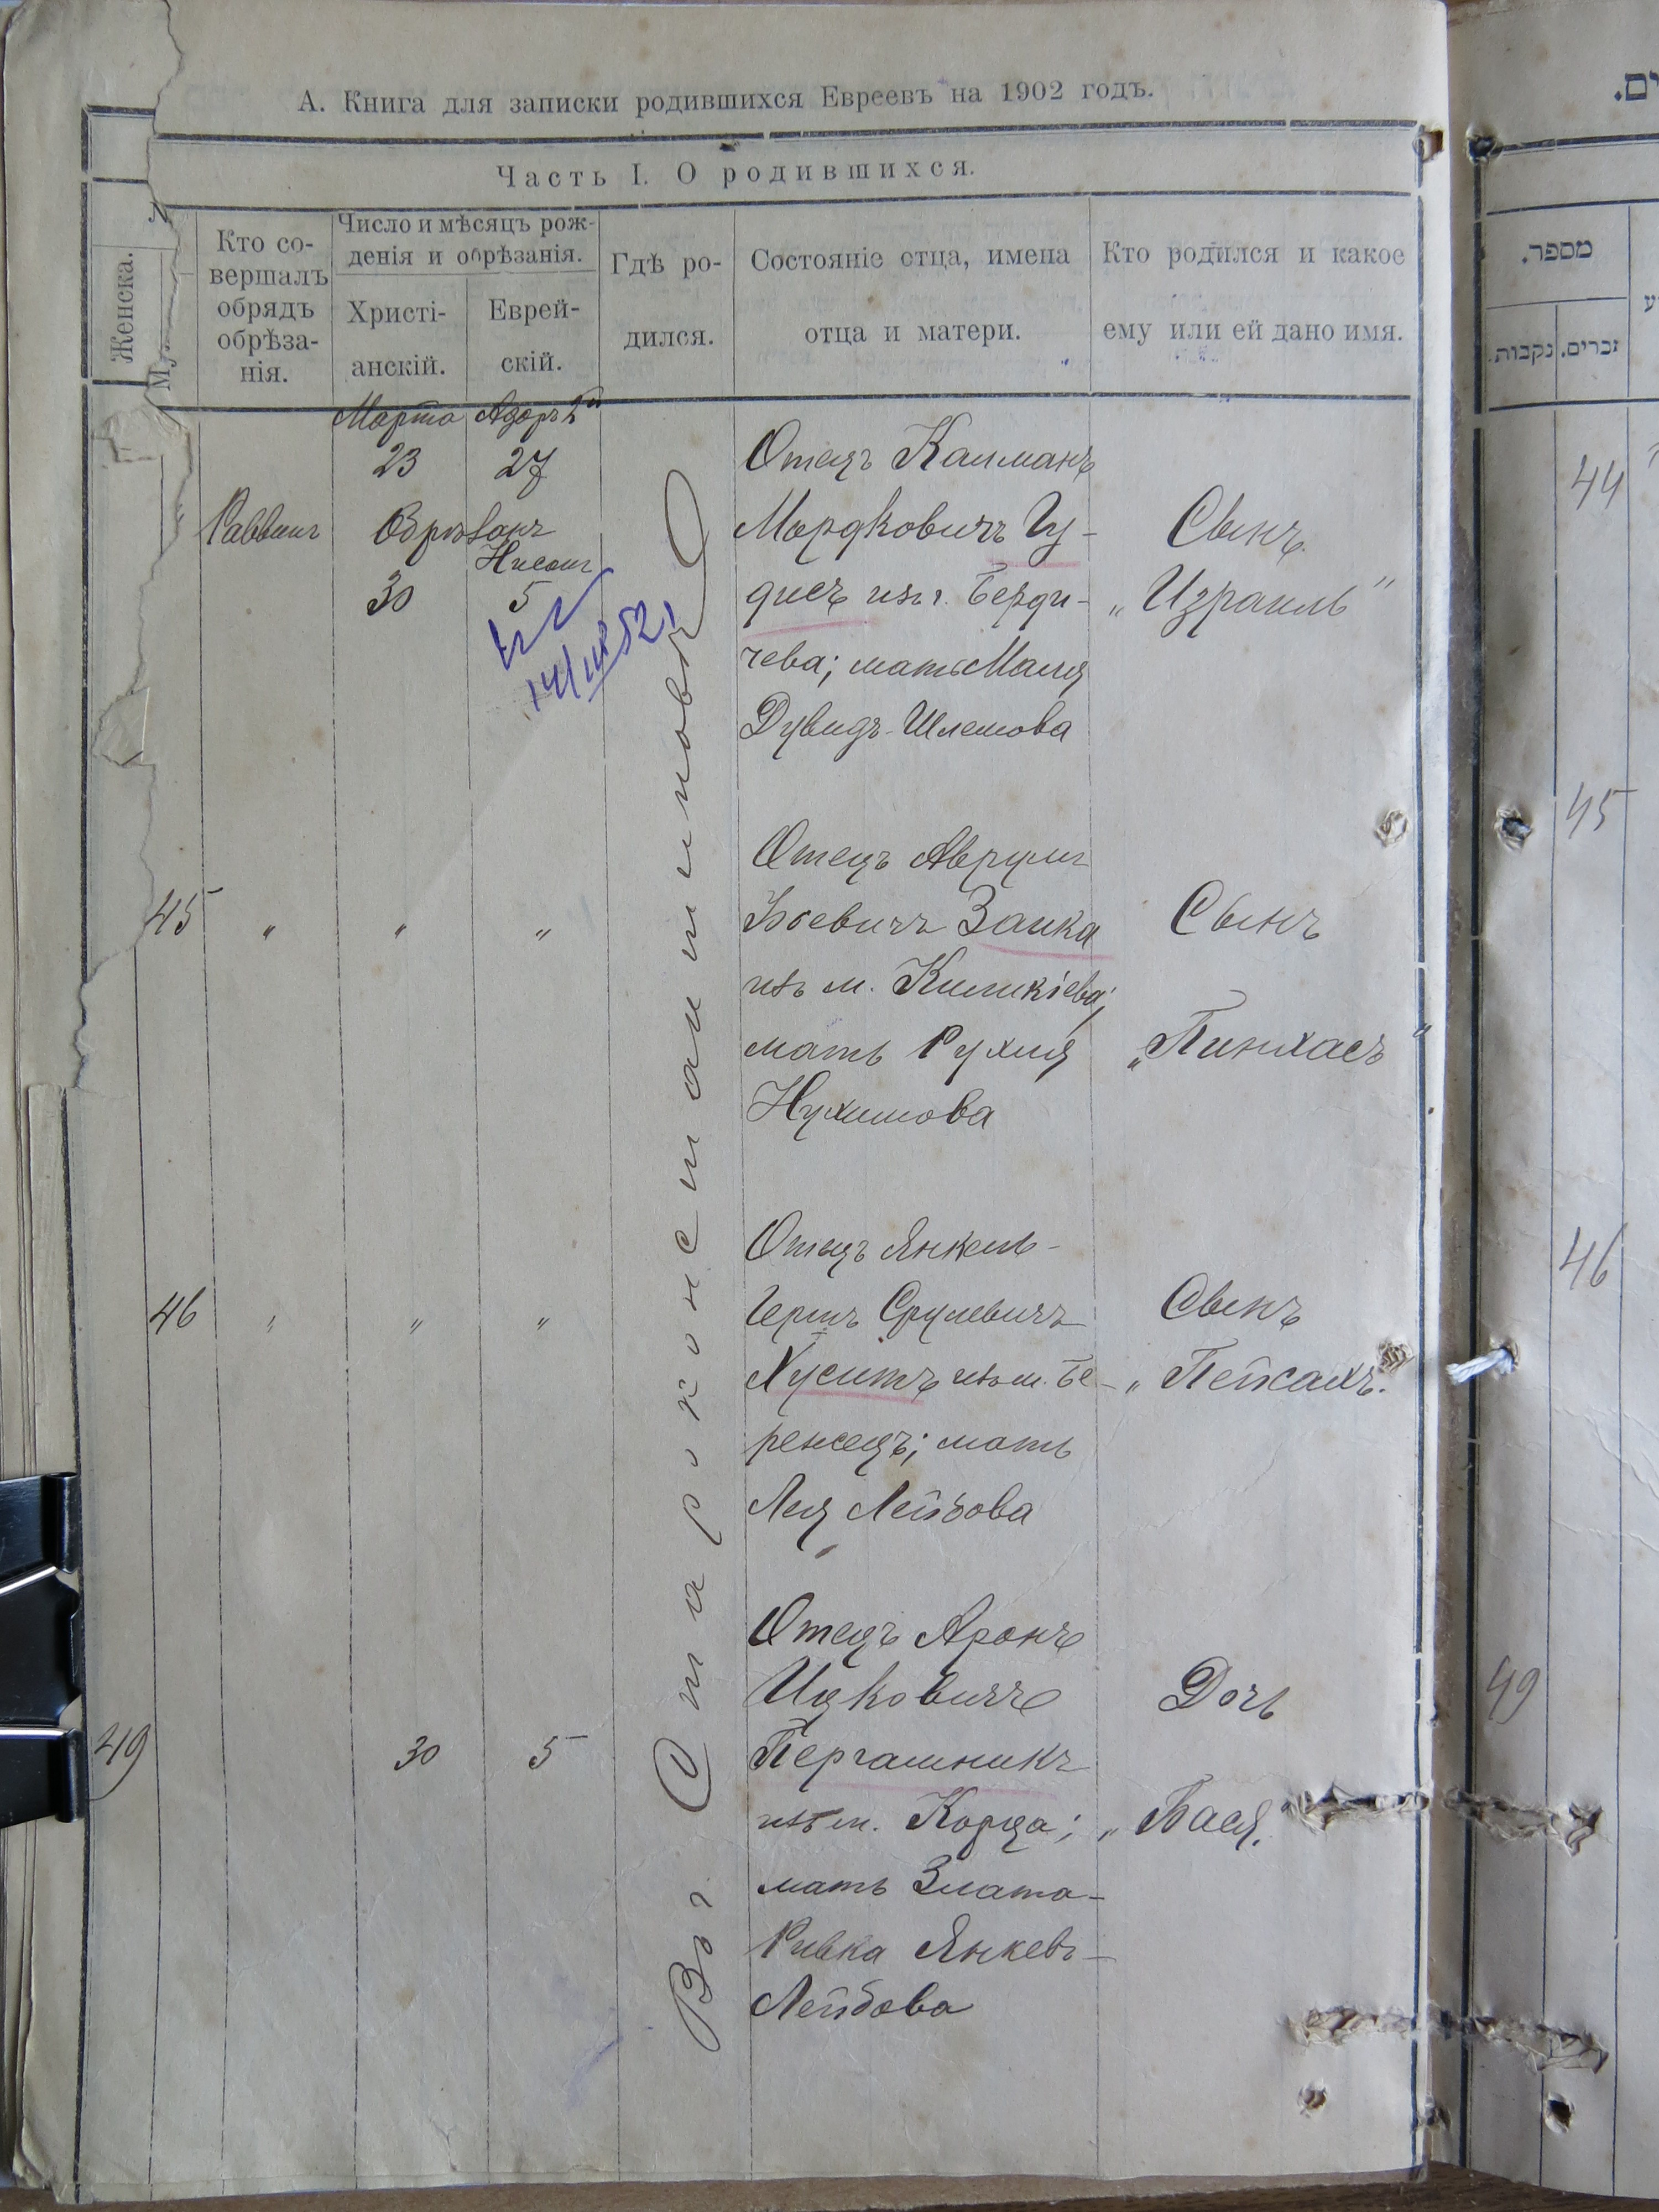 А. Книга для записки родившихся Евреевъ на 1902 годъ.
Часть I. О родившихся.
Женска.
Кто со-
вершалъ
обрядъ
обрѣза-
нія.
Число и мѣсяцъ рож-
денія и обрѣзанія.
Христі-
анскій.
Еврей-
скій.
Гдѣ ро-
дился.
Состояніе отца, имена
отца и матери.
Кто родился и какое
ему или ей дано имя.
Марта Адоръ 2й
23 27
Раввинъ Обрѣзанъ
Нисонъ
30 5
Въ г. Староконстантиновѣ
Отецъ Калманъ
Мордковичъ Гу-
дисъ изъ г. Берди-
чева; мать Маля
Дувидъ-Шлемова
Сынъ
„Израиль"
45 " " "
Отецъ Аврумъ
Іосевичъ Заика
изъ м. Кишкіева;
мать Рухля
Нухимова
Сынъ
„Пинхасъ"
46 " " "
Отецъ Янкель-
Гершъ Срулевичъ
Хуситъ изъ м. Бе-
режецъ; мать
Лея Лейбова
Сынъ
„Пейсахъ"
49 30 5
Отецъ Аронъ
Ицковичъ
Пергашникъ
изъ м. Корца;
мать Злата-
Ривка Янкевъ-
Лейбова
Дочь
„Бася"
ים.
מספר.
זכרים.
נקבות.
44
45
46
49